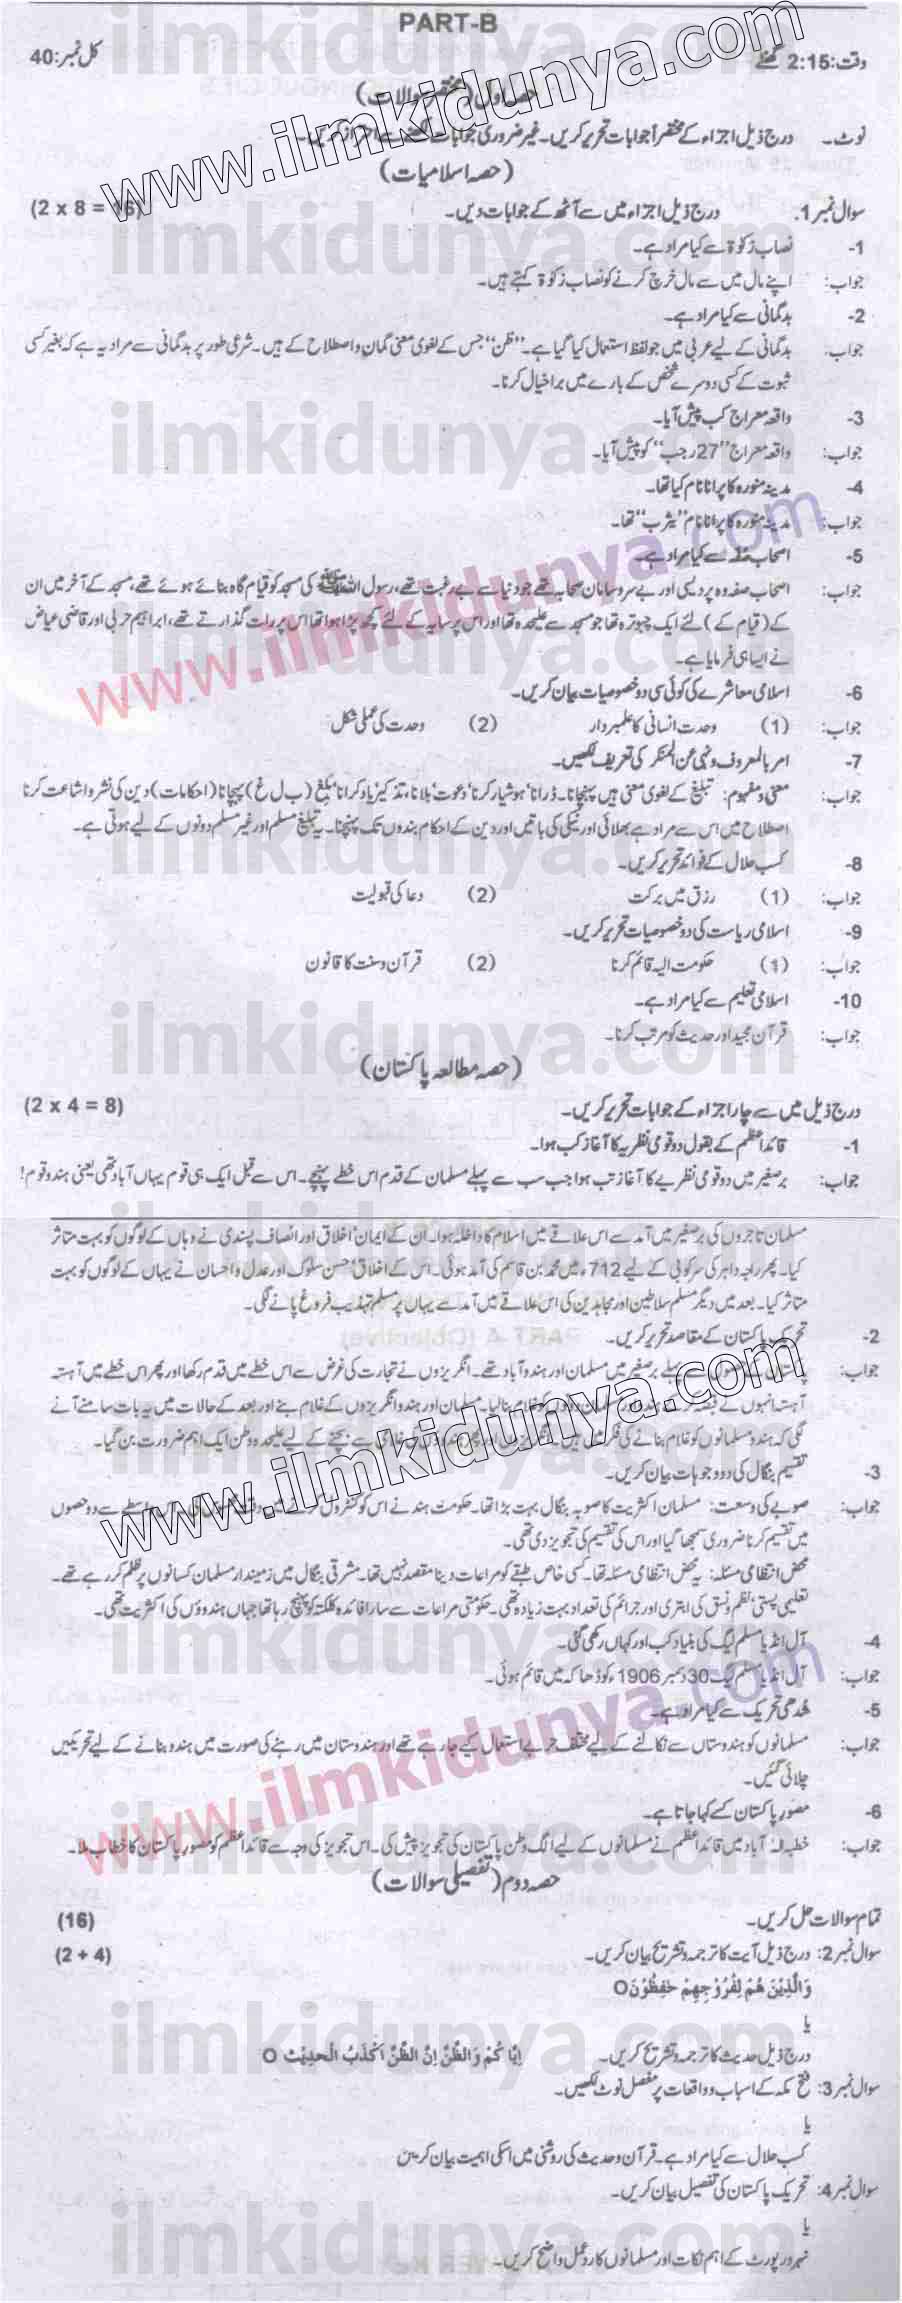 PART-B
وقت: 2:15 گھنٹے
کل نمبر: 40
حصہ اول (مختصر سوالات)
نوٹ۔ درج ذیل اجزاء کے مختصراً جوابات تحریر کریں۔ غیر ضروری جوابات لکھنے سے احتراز کریں۔
(حصہ اسلامیات)
سوال نمبر 1. درج ذیل اجزاء میں سے آٹھ کے جوابات دیں۔ (2 x 8 = 16)
1- نصاب زکوٰۃ سے کیا مراد ہے۔
جواب: اپنے مال میں سے مال خرچ کرنے کو نصاب زکوٰۃ کہتے ہیں۔
2- بدگمانی سے کیا مراد ہے۔
جواب: بدگمانی کے لیے عربی میں جو لفظ استعمال کیا گیا ہے۔ ”ظن“ جس کے لغوی معنی گمان و اصطلاح کے ہیں۔ شرعی طور پر بدگمانی سے مراد یہ ہے کہ بغیر کسی
ثبوت کے کسی دوسرے شخص کے بارے میں برا خیال کرنا۔
3- واقعہ معراج کب پیش آیا۔
جواب: واقعہ معراج ”27 رجب“ کو پیش آیا۔
4- مدینہ منورہ کا پرانا نام کیا تھا۔
جواب: مدینہ منورہ کا پرانا نام ”یثرب“ تھا۔
5- اصحاب صفہ سے کیا مراد ہے۔
جواب: اصحاب صفہ وہ پردیسی اور بے سروسامان صحابہ تھے جو دنیا سے بے رغبت تھے، رسول اللہ ﷺ کی مسجد کو قیام گاہ بنائے ہوئے تھے، مسجد کے آخر میں ان
کے (قیام کے) لئے ایک چبوترہ تھا جو مسجد سے علیحدہ تھا اور اس پر سایہ کے لئے کچھ پڑا ہوا تھا اس پر رات گذارتے تھے، ابراہیم حربی اور قاضی عیاض
نے ایسا ہی فرمایا ہے۔
6- اسلامی معاشرے کی کوئی سی دو خصوصیات بیان کریں۔
جواب: (1) وحدت انسانی کا علمبردار (2) وحدت کی عملی شکل
7- امر بالمعروف و نہی عن المنکر کی تعریف لکھیں۔
جواب: معنی و مفہوم: تبلیغ کے لغوی معنی ہیں پہنچانا۔ ڈرانا‘ ہوشیار کرنا‘ دعوت‘ بلانا، تذکیر‘ یاد کرانا‘ بلغ (ب ل غ) پہچانا (احکامات) دین کی نشر و اشاعت کرنا
اصطلاح میں اس سے مراد ہے بھلائی اور نیکی کی باتیں اور دین کے احکام بندوں تک پہنچنا۔ یہ تبلیغ مسلم اور غیر مسلم دونوں کے لیے ہوتی ہے۔
8- کسب حلال کے فوائد تحریر کریں۔
جواب: (1) رزق میں برکت (2) دعا کی قبولیت
9- اسلامی ریاست کی دو خصوصیات تحریر کریں۔
جواب: (1) حکومت الہیہ قائم کرنا (2) قرآن و سنت کا قانون
10- اسلامی تعلیم سے کیا مراد ہے۔
جواب: قرآن مجید اور حدیث کو مرتب کرنا۔
(حصہ مطالعہ پاکستان)
درج ذیل میں سے چار اجزاء کے جوابات تحریر کریں۔ (2 x 4 = 8)
1- قائداعظم کے بقول دو قومی نظریہ کا آغاز کب ہوا۔
جواب: برصغیر میں دو قومی نظریے کا آغاز تب ہوا جب سب سے پہلے مسلمان کے قدم اس خطے پہنچے۔ اس سے قبل ایک ہی قوم یہاں آباد تھی یعنی ہندو قوم!
مسلمان تاجروں کی برصغیر میں آمد سے اس علاقے میں اسلام کا داخلہ ہوا۔ ان کے ایمان‘ اخلاق اور انصاف پسندی نے وہاں کے لوگوں کو بہت متاثر
کیا۔ پھر راجہ داہر کی سرکوبی کے لیے 712ء میں محمد بن قاسم کی آمد ہوئی۔ اس کے اخلاق‘ حسن سلوک اور عدل و احسان نے یہاں کے لوگوں کو بہت
متاثر کیا۔ بعد میں دیگر مسلم سلاطین اور مجاہدین کی اس علاقے میں آمد سے یہاں پر مسلم تہذیب فروغ پانے لگی۔
2- تحریک پاکستان کے مقاصد تحریر کریں۔
جواب: پاکستان کے حصول سے پہلے برصغیر میں مسلمان اور ہندو آباد تھے۔ انگریزوں نے تجارت کی غرض سے اس خطے میں قدم رکھا اور پھر اس خطے میں آہستہ
آہستہ انہوں نے قبضہ کر کے ہندو اور مسلمان دونوں کو غلام بنا لیا۔ مسلمان اور ہندو انگریزوں کے غلام بنے اور بعد کے حالات میں یہ بات سامنے آنے
لگی کہ ہندو مسلمانوں کو غلام بنانے کی فکر میں ہیں۔ انگریزوں اور پھر ہندوؤں کی غلامی سے بچنے کے لیے علیحدہ وطن ایک اہم ضرورت بن گیا۔
3- تقسیم بنگال کی دو وجوہات بیان کریں۔
جواب: صوبے کی وسعت: مسلمان اکثریت کا صوبہ بنگال بہت بڑا تھا۔ حکومت ہند نے اس کو کنٹرول کرنے میں دقت محسوس کی۔ اس واسطے سے دو حصوں
میں تقسیم کرنا ضروری سمجھا گیا اور اس کی تقسیم کی تجویز دی تھی۔
محض انتظامی مسئلہ: یہ محض انتظامی مسئلہ تھا۔ کسی خاص طبقے کو مراعات دینا مقصد نہیں تھا۔ مشرقی بنگال میں زمیندار مسلمان کسانوں پر ظلم کر رہے تھے۔
تعلیمی پستی‘ نظم و نسق کی ابتری اور جرائم کی تعداد بہت زیادہ تھی۔ حکومتی مراعات سے سارا فائدہ کلکتہ کو پہنچ رہا تھا جہاں ہندوؤں کی اکثریت تھی۔
4- آل انڈیا مسلم لیگ کی بنیاد کب اور کہاں رکھی گئی۔
جواب: آل انڈیا مسلم لیگ 30 دسمبر 1906ء کو ڈھاکہ میں قائم ہوئی۔
5- شدھی تحریک سے کیا مراد ہے۔
جواب: مسلمانوں کو ہندوستان سے نکالنے کے لیے مختلف حربے استعمال کیے جا رہے تھے اور ہندوستان میں رہنے کی صورت میں ہندو بنانے کے لیے تحریکیں
چلائی گئیں۔
6- مصور پاکستان کسے کہا جاتا ہے۔
جواب: خطبہ الہ آباد میں قائداعظم نے مسلمانوں کے لیے الگ وطن پاکستان کی تجویز پیش کی۔ اس تجویز کی وجہ سے قائداعظم کو مصور پاکستان کا خطاب ملا۔
حصہ دوم (تفصیلی سوالات)
تمام سوالات حل کریں۔ (16)
سوال نمبر 2: درج ذیل آیت کا ترجمہ و تشریح بیان کریں۔ (2 + 4)
وَالَّذِيْنَ هُمْ لِفُرُوْجِهِمْ حٰفِظُوْنَ O
یا
درج ذیل حدیث کا ترجمہ و تشریح کریں۔ اِيَّا كُمْ وَالظَّنَّ اِنَّ الظَّنَّ اَكْذَبُ الْحَدِيْثِ O
سوال نمبر 3: فتح مکہ کے اسباب و واقعات پر مفصل نوٹ لکھیں۔
یا
کسب حلال سے کیا مراد ہے۔ قرآن و حدیث کی روشنی میں اسکی اہمیت بیان کریں
سوال نمبر 4: تحریک پاکستان کی تفصیل بیان کریں۔
یا
نہرو رپورٹ کے اہم نکات اور مسلمانوں کا ردعمل واضح کریں۔